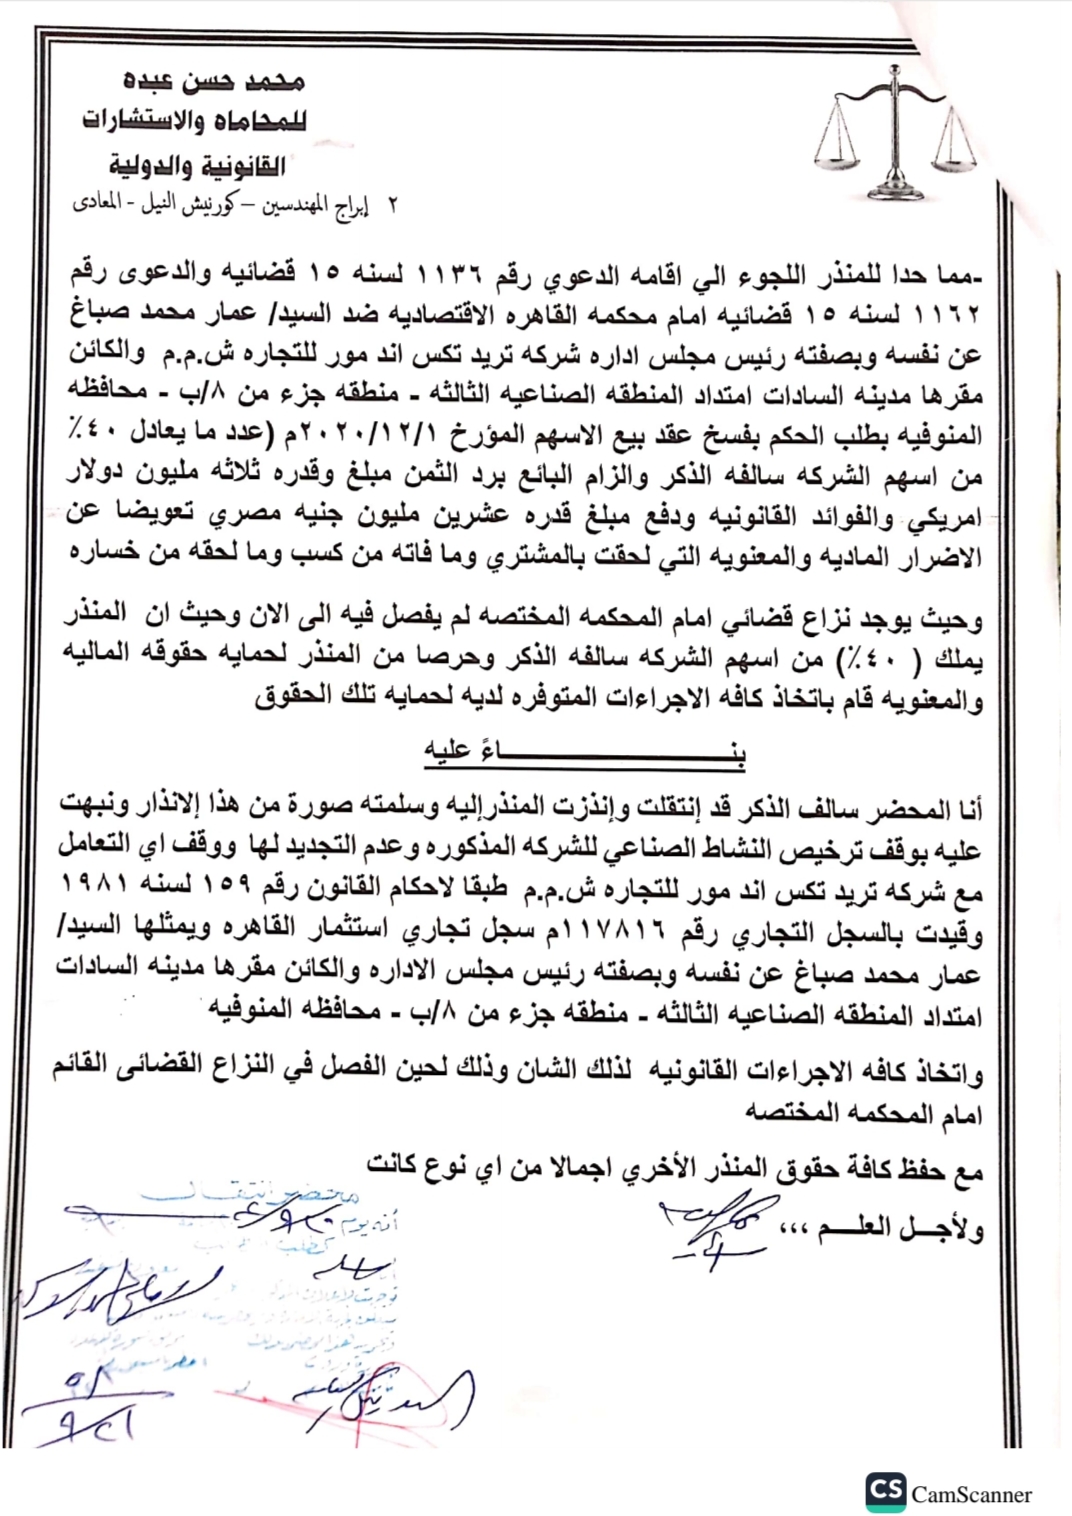 محمد حسن عبده
للمحاماه والاستشارات
القانونية والدولية
٢ إبراج المهندسين – كورنيش النيل - المعادى
-مما حدا للمنذر اللجوء الي اقامه الدعوي رقم ١١٣٦ لسنه ١٥ قضائيه والدعوى رقم
١١٦٢ لسنه ١٥ قضائيه امام محكمه القاهره الاقتصاديه ضد السيد/ عمار محمد صباغ
عن نفسه وبصفته رئيس مجلس اداره شركه تريد تكس اند مور للتجاره ش.م.م والكائن
مقرها مدينه السادات امتداد المنطقه الصناعيه الثالثه - منطقه جزء من ٨/ب - محافظه
المنوفيه بطلب الحكم بفسخ عقد بيع الاسهم المؤرخ ٢٠٢٠/١٢/١م (عدد ما يعادل ٤٠٪
من اسهم الشركه سالفه الذكر والزام البائع برد الثمن مبلغ وقدره ثلاثه مليون دولار
امريكي والفوائد القانونيه ودفع مبلغ قدره عشرين مليون جنيه مصري تعويضا عن
الاضرار الماديه والمعنويه التي لحقت بالمشتري وما فاته من كسب وما لحقه من خساره
وحيث يوجد نزاع قضائي امام المحكمه المختصه لم يفصل فيه الى الان وحيث ان المنذر
يملك ( ٤٠٪) من اسهم الشركه سالفه الذكر وحرصا من المنذر لحمايه حقوقه الماليه
والمعنويه قام باتخاذ كافه الاجراءات المتوفره لديه لحمايه تلك الحقوق
بنـــــــــــــــــاءً عليه
أنا المحضر سالف الذكر قد إنتقلت وإنذزت المنذرإليه وسلمته صورة من هذا الإنذار ونبهت
عليه بوقف ترخيص النشاط الصناعي للشركه المذكوره وعدم التجديد لها ووقف اي التعامل
مع شركه تريد تكس اند مور للتجاره ش.م.م طبقا لاحكام القانون رقم ١٥٩ لسنه ١٩٨١
وقيدت بالسجل التجاري رقم ١١٧٨١٦م سجل تجاري استثمار القاهره ويمثلها السيد/
عمار محمد صباغ عن نفسه وبصفته رئيس مجلس الاداره والكائن مقرها مدينه السادات
امتداد المنطقه الصناعيه الثالثه - منطقه جزء من ٨/ب - محافظه المنوفيه
واتخاذ كافه الاجراءات القانونيه لذلك الشان وذلك لحين الفصل في النزاع القضائى القائم
امام المحكمه المختصه
مع حفظ كافة حقوق المنذر الأخري اجمالا من اي نوع كانت
ولأجل العلـــم ,,,
محضر انتقال
أنه يوم
CS CamScanner